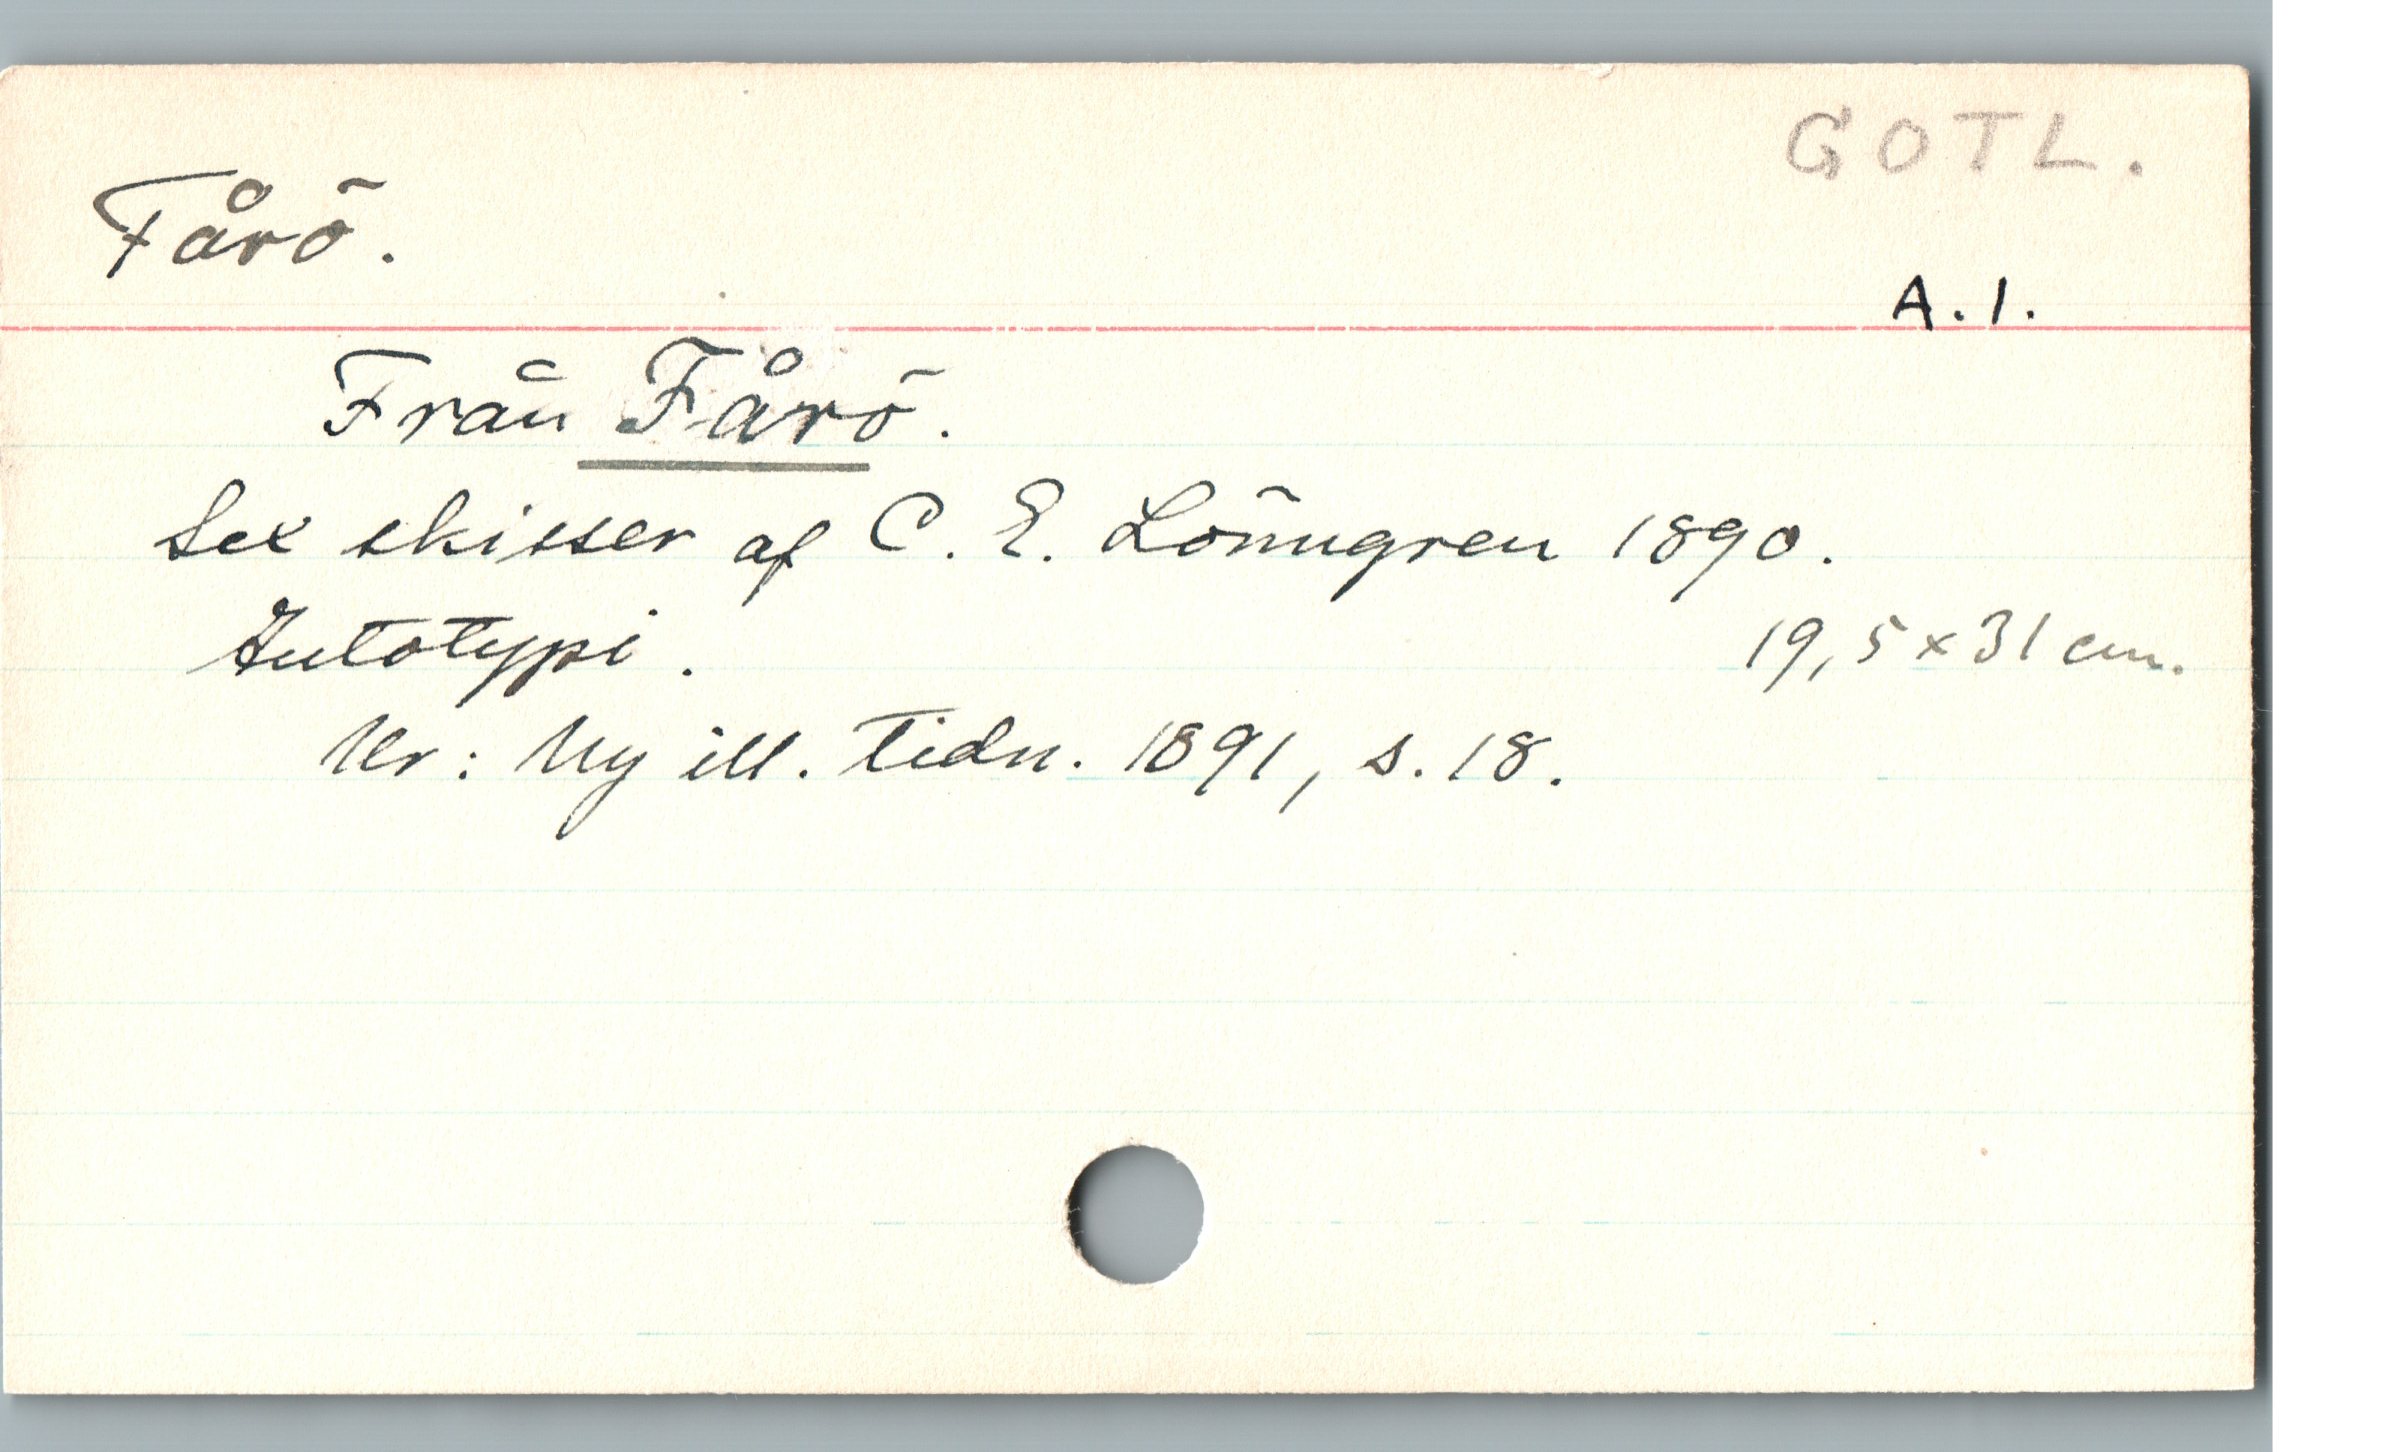 GOTL.
Fårö.
A.1.
Från Fårö.
Sex skisser af C. E. Lönngren 1890.
Autotypi. 19,5 x 31 cm.
Ur: Ny ill. tidn. 1891, s. 18.